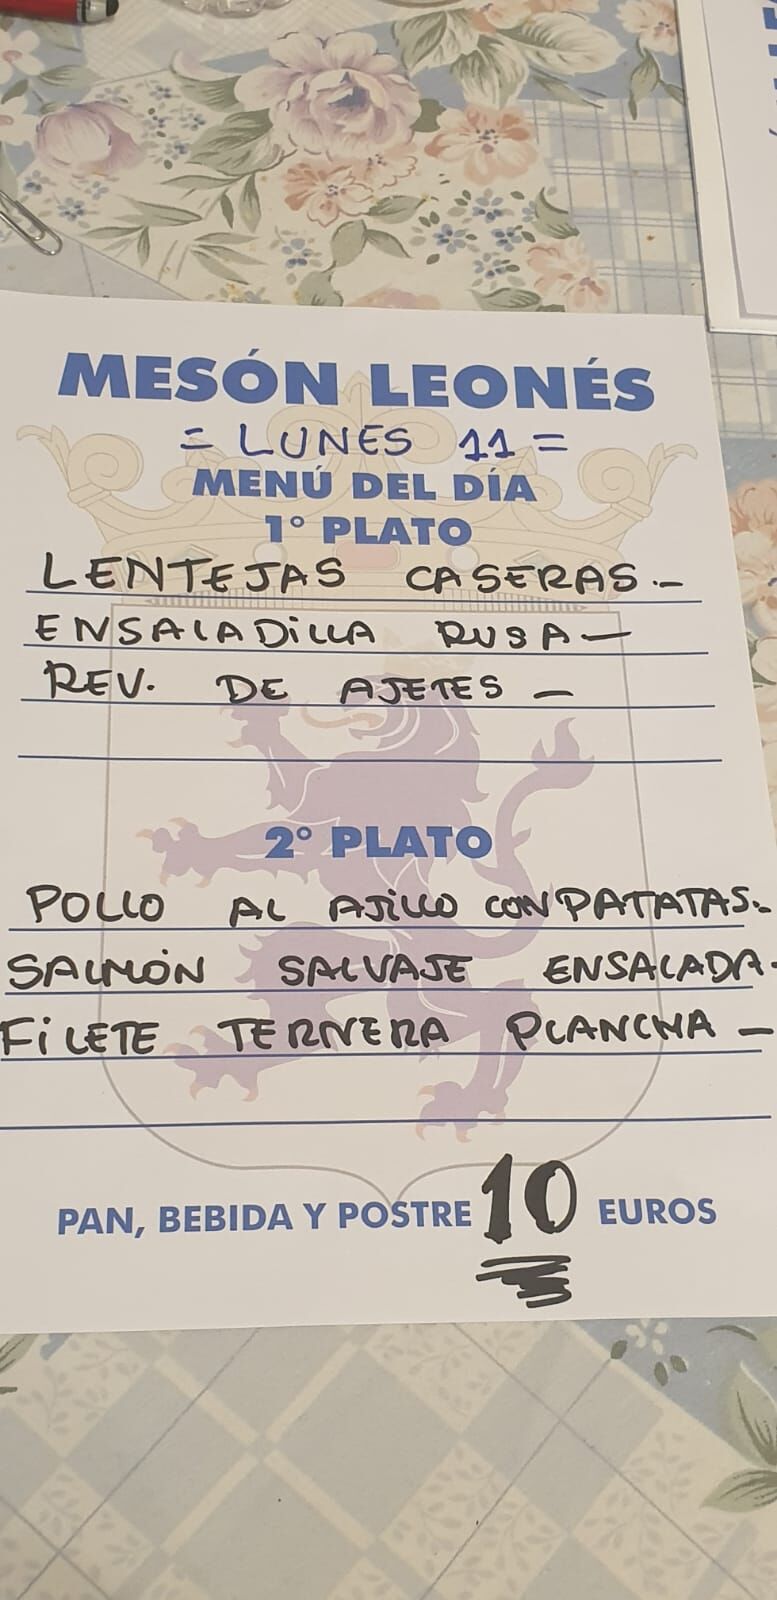 MESÓN LEONÉS
= LUNES 11 =
MENÚ DEL DÍA
1° PLATO
LENTEJAS CASERAS.-
ENSALADILLA RUSA-
REV. DE AJETES -
2° PLATO
POLLO AL AJILLO CON PATATAS.
SALMÓN SALVAJE ENSALADA.
FILETE TERNERA PLANCHA -
PAN, BEBIDA Y POSTRE 10 EUROS